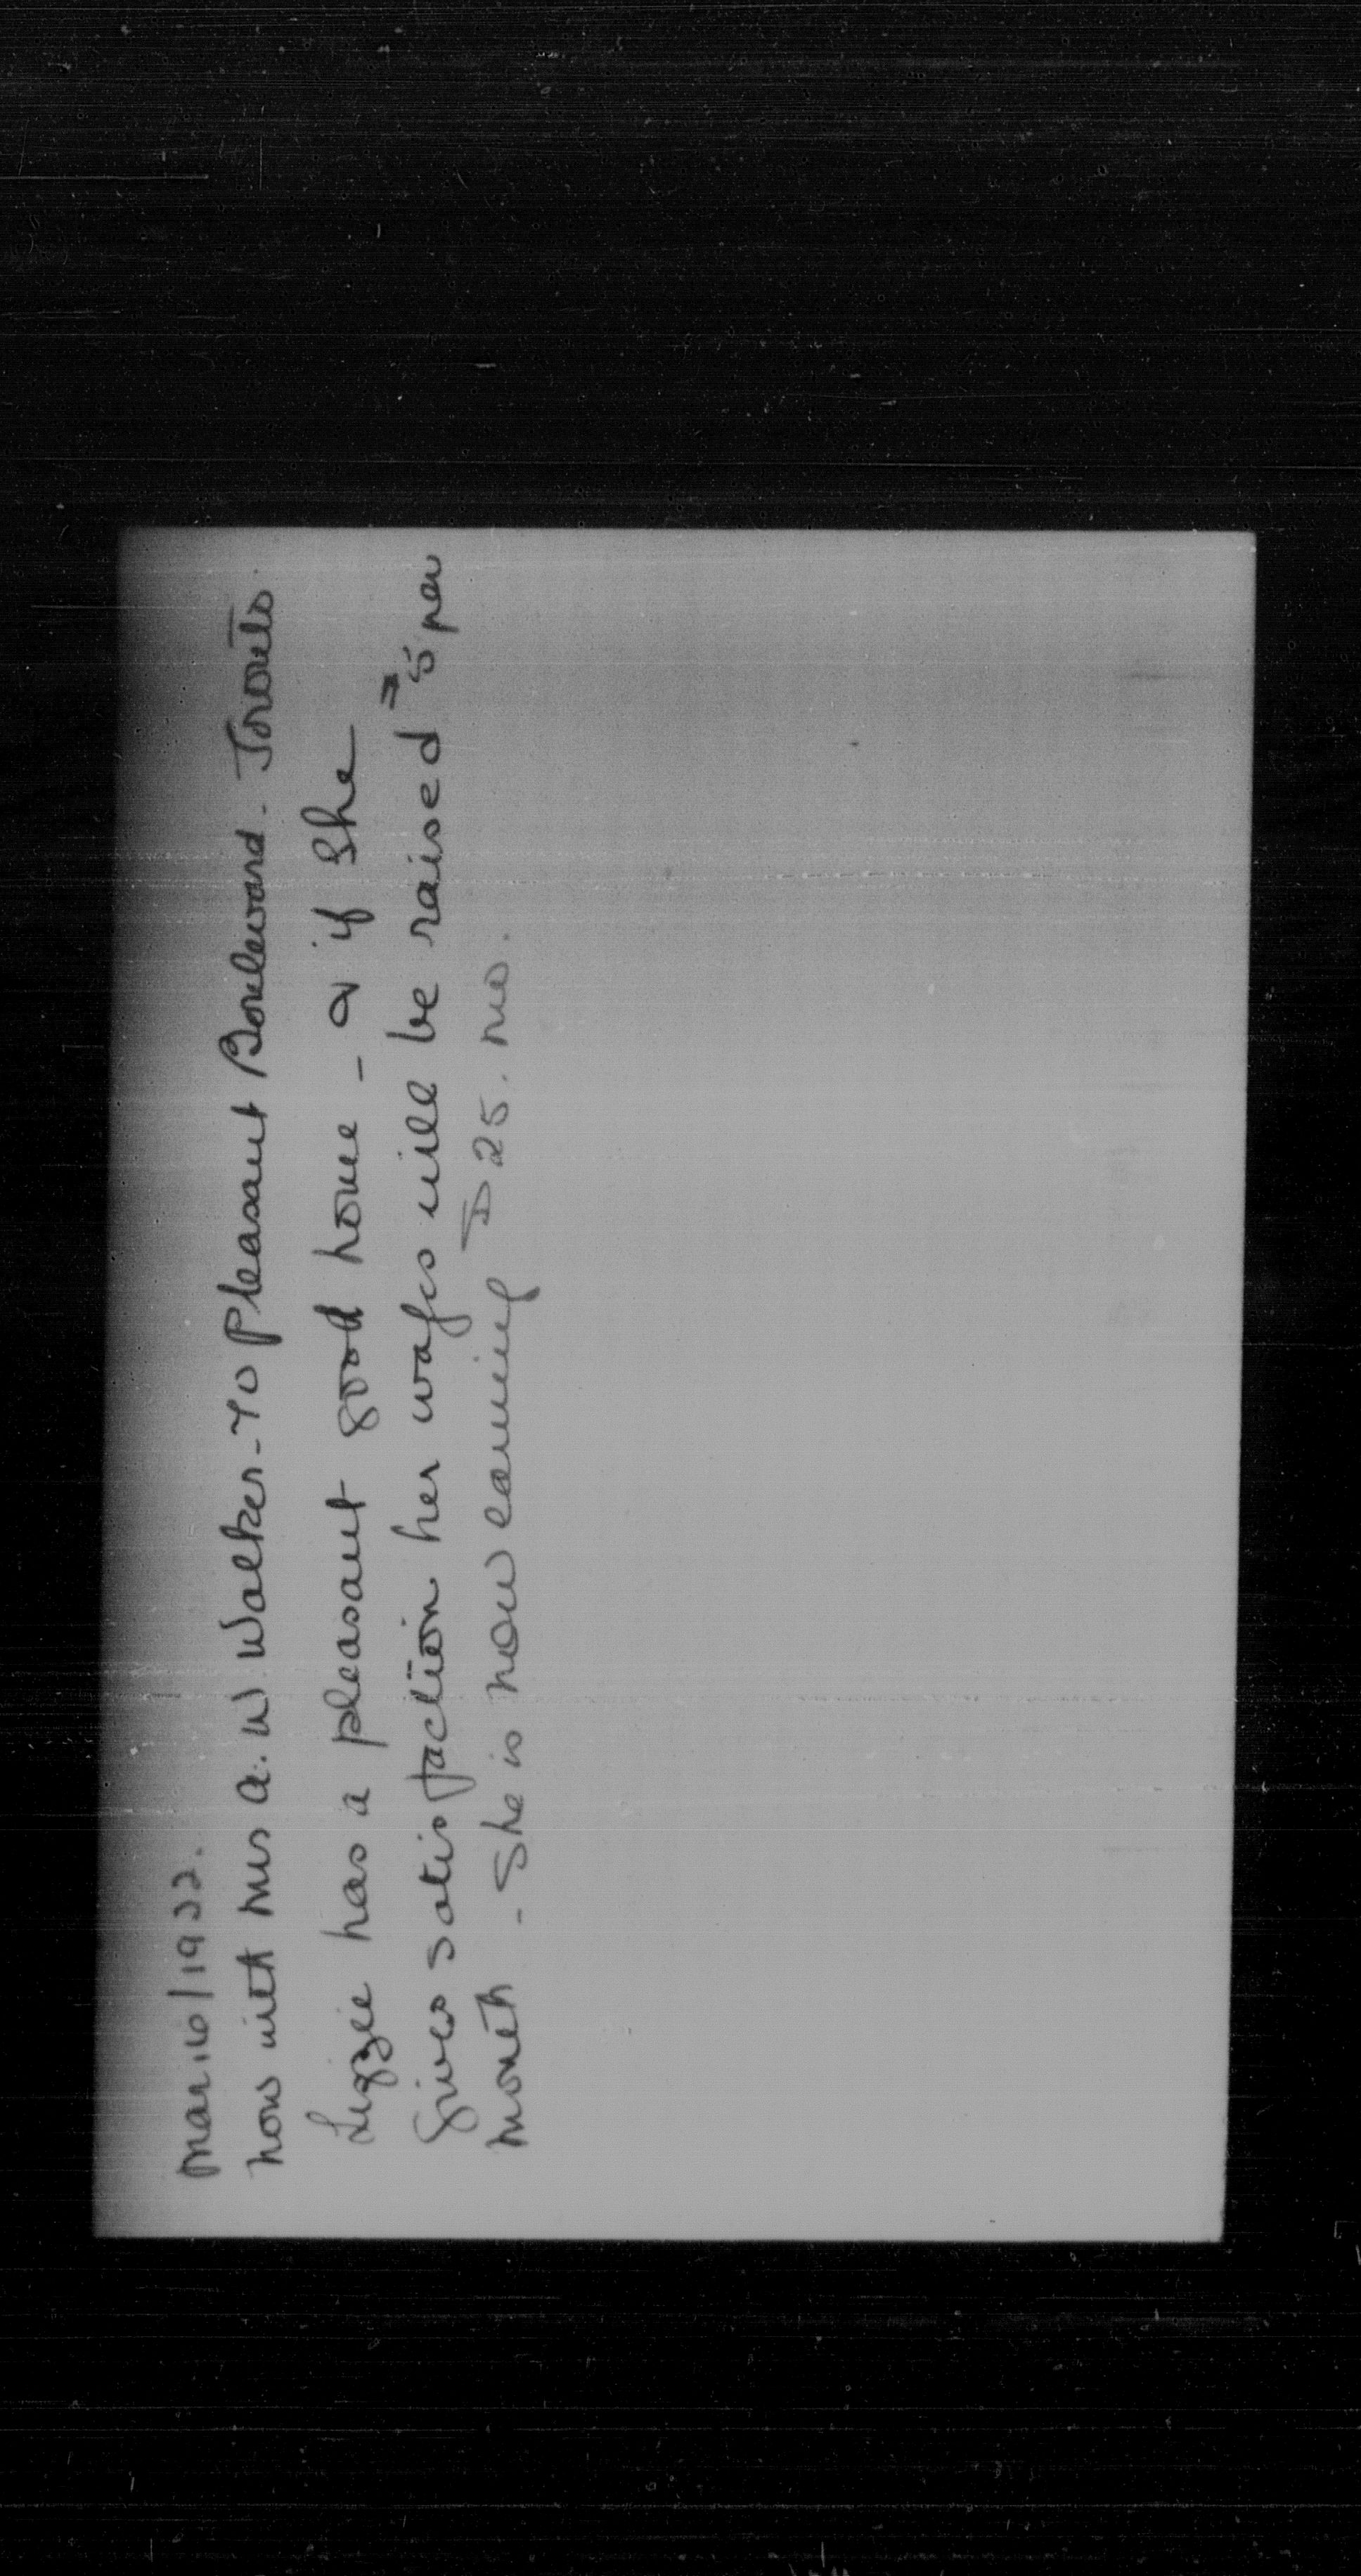 Mar 16/1922.
now with Mrs A. W. Walker - 70 Pleasant Boulevard. Toronto
Lizzie has a pleasant good home - & if she
gives satisfaction her wages will be raised $5 per
month - She is now earning $25. mo.